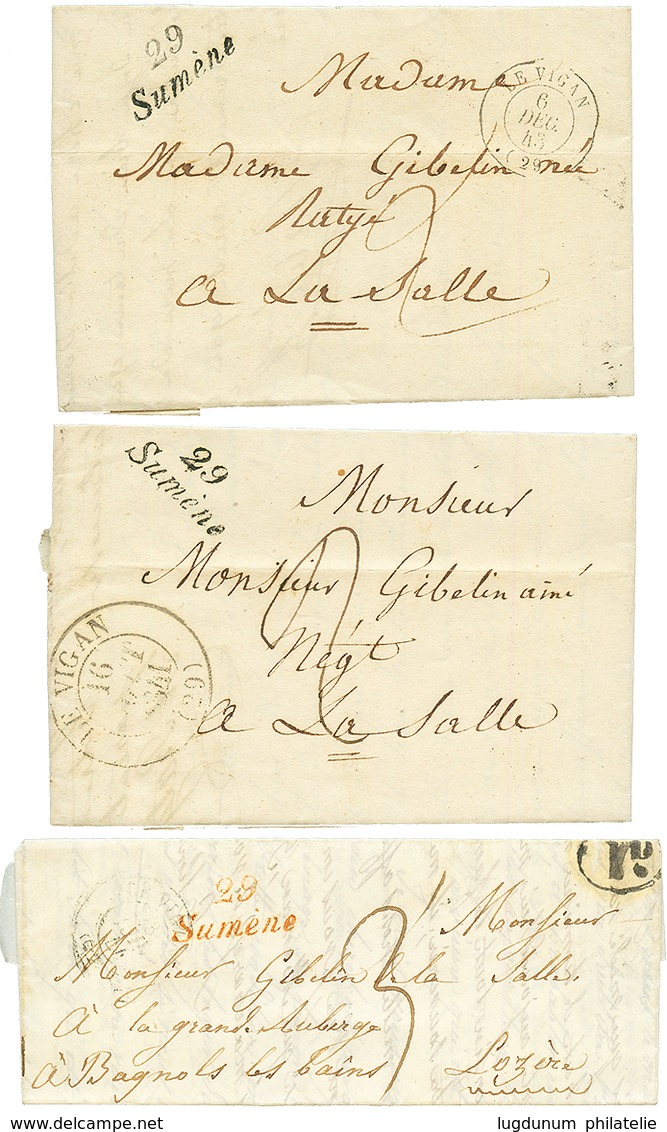 29
Sumène
LE VIGAN
6
DEC.
43
(29)
Madame
Madame Gibelin née
à La Salle
29
Sumène
Monsieur
Monsieur Gibelin ainé
Négt
à La Salle
LE VIGAN
16
(29)
29
Sumène
Monsieur
Monsieur Gibelin de la Salle
à la grande Auberge
à Bagnols les bains
Lozère
© www.delcampe.net
lugdunum philatelie